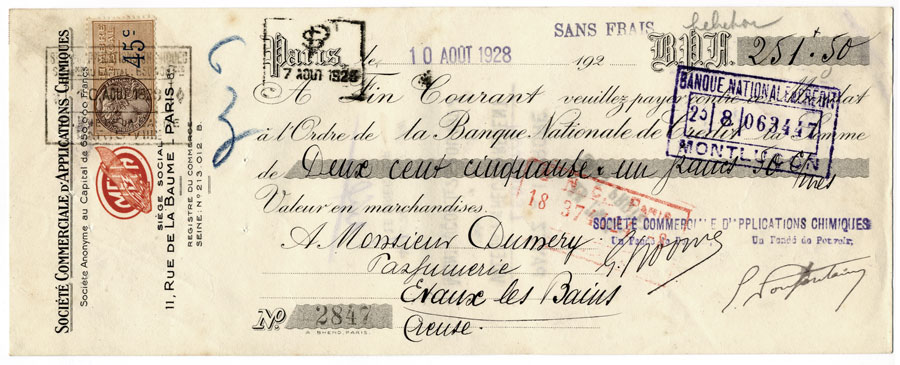 SOCIÉTÉ COMMERCIALE D'APPLICATIONS CHIMIQUES
Société Anonyme au Capital de 650.000 Francs
SIÈGE SOCIAL
11, RUE DE LA BAUME - PARIS-8e
REGISTRE DU COMMERCE
SEINE: Nº 213 012 B.
45c
SANS FRAIS
Paris, le 10 AOUT 1928 192 B.P.F. 251.50
7 AOUT 1928
A Fin Courant veuillez payer contre Mandat
à l'Ordre de la Banque Nationale de Crédit la somme
de Deux cent cinquante & un francs 50 
Valeur en marchandises.
BANQUE NATIONALE DE CREDIT
25 8 063447
MONTLUÇON
B.N.C. PARIS
18 37
SOCIÉTÉ COMMERCIALE D'APPLICATIONS CHIMIQUES
Un Fondé de Pouvoir, Un Fondé de Pouvoir,
A Monsieur Dumery
Parfumerie
Evaux les Bains
Creuse.
Nº 2847